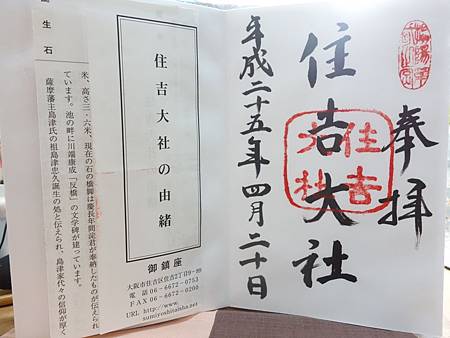 奉拝
住吉大社
住吉
平成二十五年四月二十日
住吉大社の由緒
御鎮座
大阪市住吉区住吉2丁目9-89
電話 06-6672-0753
FAX 06-6672-0200
URL http://www.
sumiyoshitaisha.net
米、高さ三・六米、現在の石の橋脚は慶長年間淀君が奉納したものが伝えられ
ています。池の畔に川端康成「反橋」の文学碑が建っています。
生石
薩摩藩主島津氏の祖島津忠久誕生の処と伝えられ、島津家代々の信仰が厚く